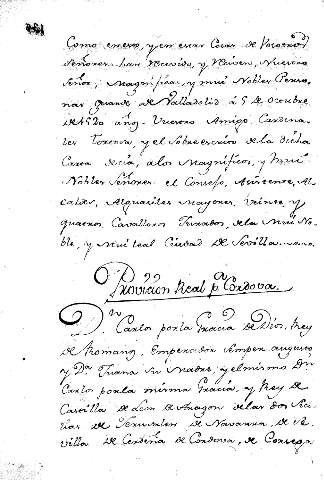 Como en esto, y en estas Cosas de Vuestros
Señores han Servido, y Sirven, Nuestro
Señor, Magnificas, y mui Nobles Perso-
nas guarde de Valladolid à 5 de Octubre
de 1520 años. Vuestro Amigo, Cardena-
les Tortosa, y el Sobreescrito de la dicha
Carta decia, a los Magnificos, y mui
Nobles Señores el Consejo, Asistente, Al-
caldes, Alguaciles Mayores, Veinte y
quatros Cavalleros Jurados, de la Mui No-
ble, y Mui leal Ciudad de Sevilla
Provicion Real pª Cordova
Dn Carlos por la Gracia de Dios, Rey
de Romanos, Emperador Semper augusto
y Dª Juana Su Madre, y el mismo Dn
Carlos por la misma Gracia, y Rey de
Castilla de Leon de Aragon de las dos Sici-
lias de Jerusalen de Navarra de Se-
villa de Cerdeña de Cordova, de Corcega